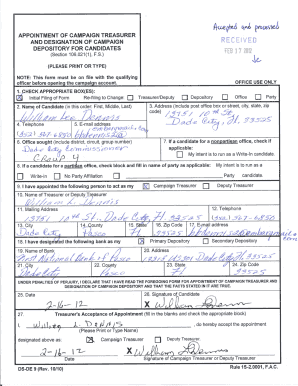 Accepted and processed
APPOINTMENT OF CAMPAIGN TREASURER
AND DESIGNATION OF CAMPAIGN
DEPOSITORY FOR CANDIDATES
(Section 106.021(1), F.S.)
(PLEASE PRINT OR TYPE)
RECEIVED
FEB 17 2012
NOTE: This form must be on file with the qualifying
officer before opening the campaign account.
OFFICE USE ONLY
1. CHECK APPROPRIATE BOX(ES):
Initial Filing of Form Re-filing to Change: Treasurer/Deputy Depository Office Party
2. Name of Candidate (in this order: First, Middle, Last)
3. Address (include post office box or street, city, state, zip code)
William Dennis
13751 10th St
Dade City, Fl 33525
4. Telephone
5. E-mail address
6. Office sought (include district, circuit, group number)
Dade City Commissioner
GROUP 4
7. If a candidate for a nonpartisan office, check if applicable:
My intent is to run as a Write-In candidate.
8. If a candidate for a partisan office, check block and fill in name of party as applicable: My intent is to run as a
Write-In No Party Affiliation Party candidate.
9. I have appointed the following person to act as my Campaign Treasurer Deputy Treasurer
10. Name of Treasurer or Deputy Treasurer
William L. Dennis
11. Mailing Address
12. Telephone
13751 10th St. Dade City Fl 33525
13. City 14. County 15. State 16. Zip Code 17. E-mail address
Dade City Pasco Fl 33525
18. I have designated the following bank as my Primary Depository Secondary Depository
19. Name of Bank
20. Address
National Bank of Pasco
21. City 22. County 23. State 24. Zip Code
Dade City Pasco Fl 33525
UNDER PENALTIES OF PERJURY, I DECLARE THAT I HAVE READ THE FOREGOING FORM FOR APPOINTMENT OF CAMPAIGN TREASURER AND DESIGNATION OF CAMPAIGN DEPOSITORY AND THAT THE FACTS STATED IN IT ARE TRUE.
25. Date
26. Signature of Candidate
2-16-12
X
27. Treasurer's Acceptance of Appointment (fill in the blanks and check the appropriate block)
I, DENNIS , do hereby accept the appointment
(Please Print or Type Name)
designated above as: Campaign Treasurer Deputy Treasurer.
2-16-12
X
Date
Signature of Campaign Treasurer or Deputy Treasurer
DS-DE 9 (Rev. 10/10)
Rule 1S-2.0001, F.A.C.